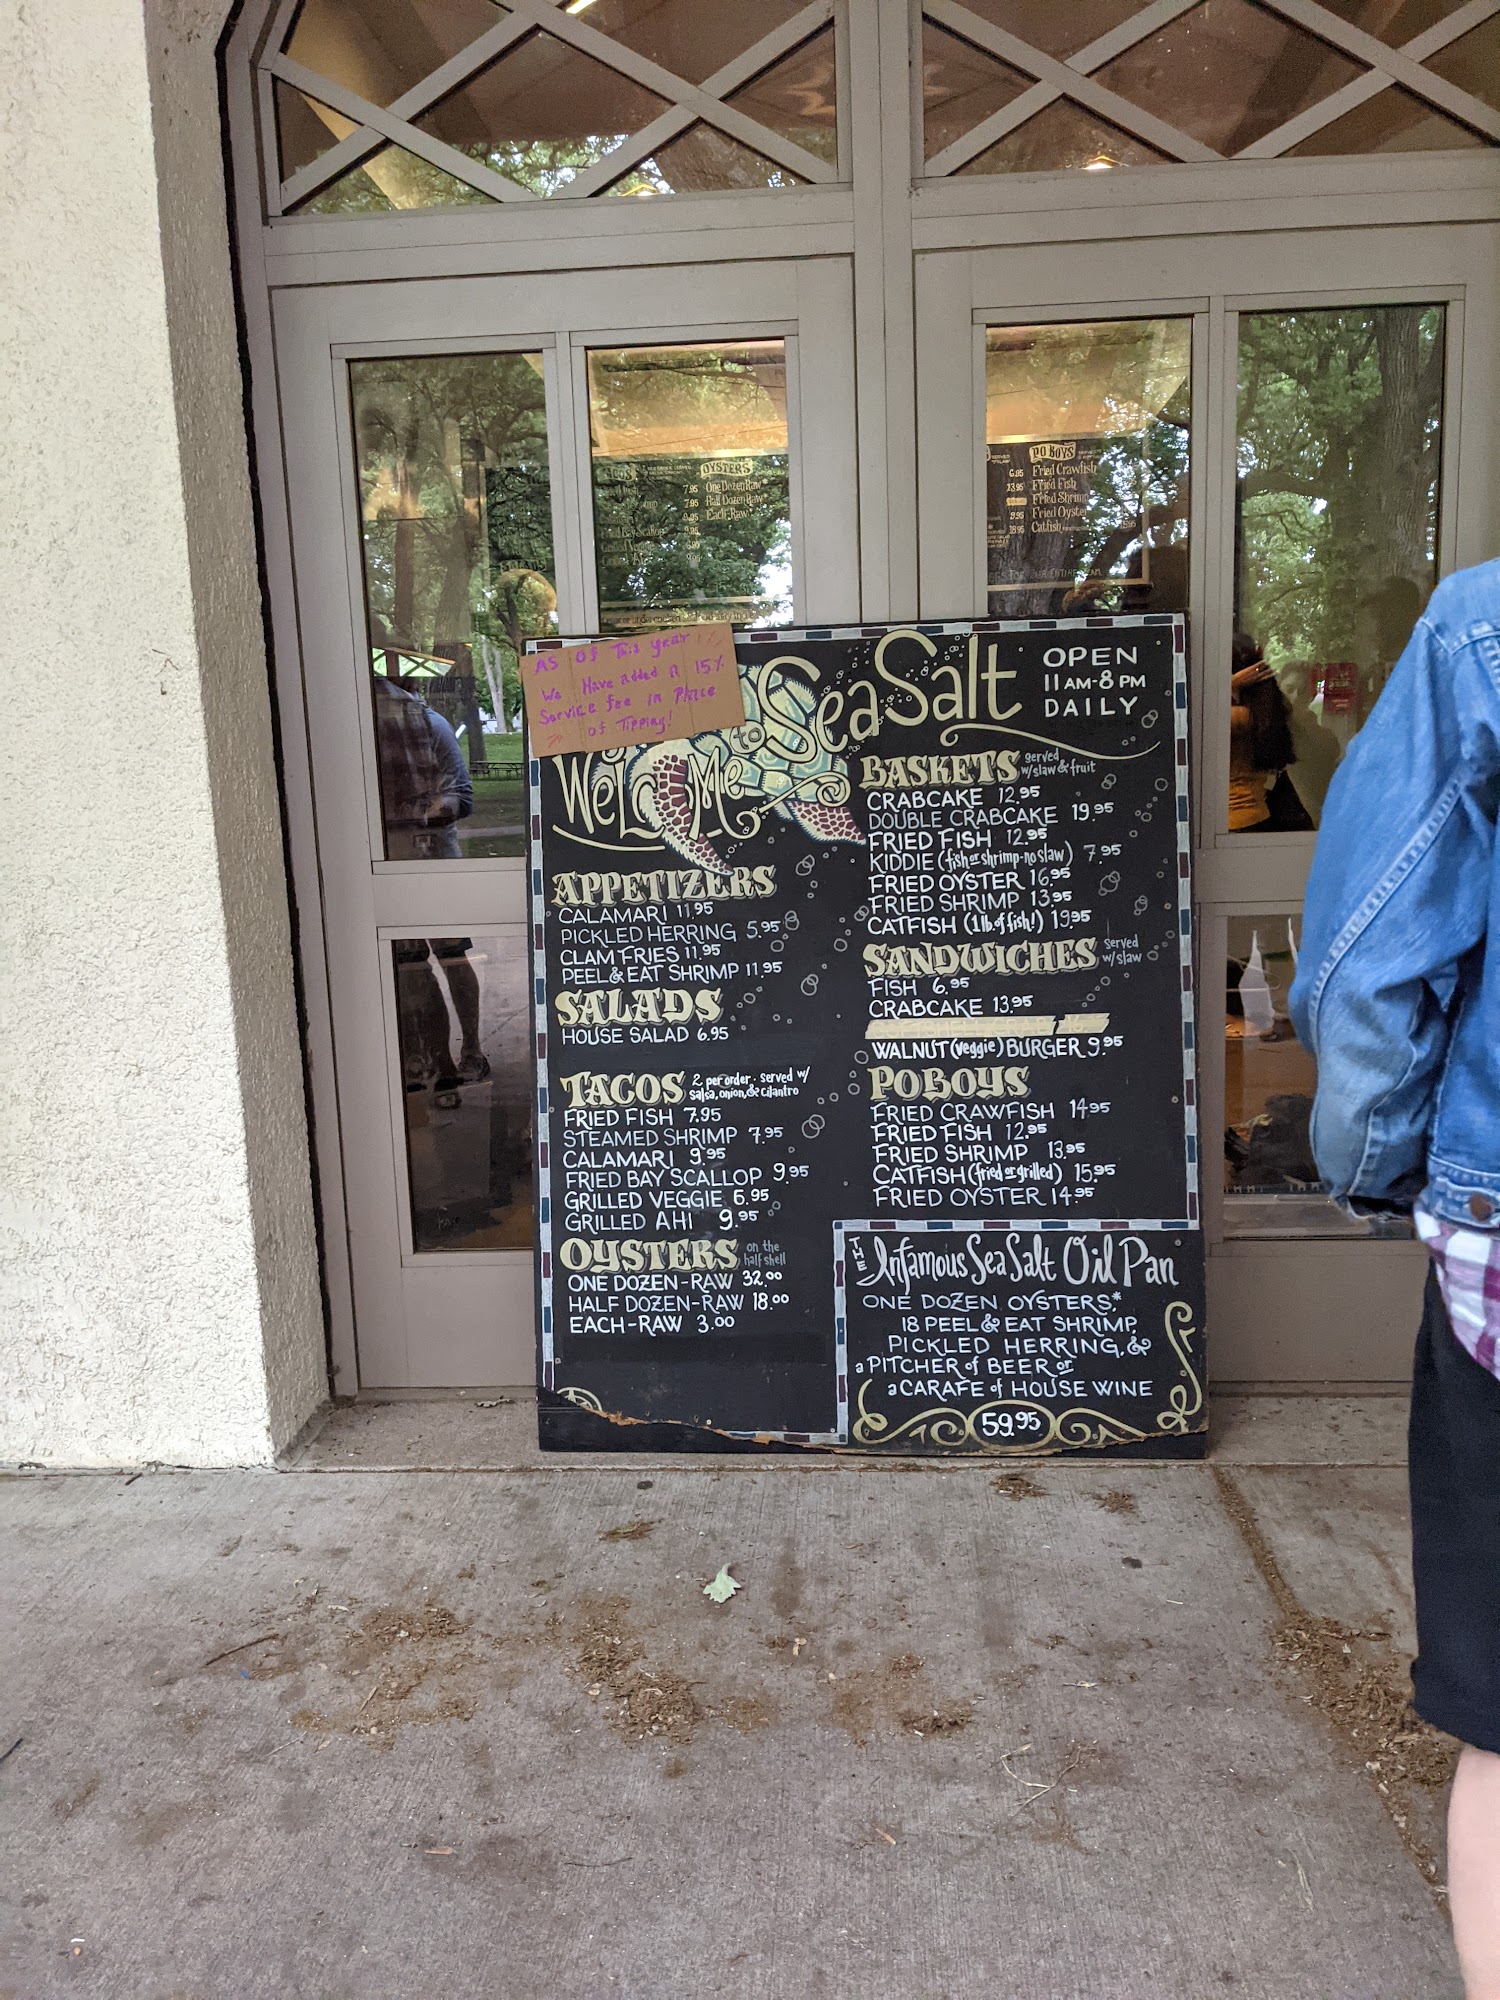 As of This year
We Have added A 15%
Service fee in Place
of Tipping!
WelCoMe
to Sea Salt
OPEN
11 AM-8 PM
DAILY
APPETIZERS
CALAMARI 11.95
PICKLED HERRING 5.95
CLAM FRIES 11.95
PEEL & EAT SHRIMP 11.95
SALADS
HOUSE SALAD 6.95
TACOS 2 per order. served w/
salsa, onion, & cilantro
FRIED FISH 7.95
STEAMED SHRIMP 7.95
CALAMARI 9.95
FRIED BAY SCALLOP 9.95
GRILLED VEGGIE 6.95
GRILLED AHI 9.95
OYSTERS on the
half shell
ONE DOZEN-RAW 32.00
HALF DOZEN-RAW 18.00
EACH-RAW 3.00
BASKETS served
w/slaw & fruit
CRABCAKE 12.95
DOUBLE CRABCAKE 19.95
FRIED FISH 12.95
KIDDIE (fish or shrimp-no slaw) 7.95
FRIED OYSTER 16.95
FRIED SHRIMP 13.95
CATFISH (1 lb. of fish!) 19.95
SANDWICHES served
w/slaw
FISH 6.95
CRABCAKE 13.95
WALNUT (veggie) BURGER 9.95
PO BOYS
FRIED CRAWFISH 14.95
FRIED FISH 12.95
FRIED SHRIMP 13.95
CATFISH (fried or grilled) 15.95
FRIED OYSTER 14.95
THE Infamous Sea Salt Oil Pan
ONE DOZEN OYSTERS,*
18 PEEL & EAT SHRIMP,
PICKLED HERRING, &
a PITCHER of BEER or
a CARAFE of HOUSE WINE
59.95
OYSTERS
7.95 One Dozen Raw*
7.95 Half Dozen Raw*
9.95 Each-Raw*
PO BOYS
6.95 Fried Crawfish
13.95 Fried Fish
Fried Shrimp
9.95 Fried Oyster
18.95 Catfish